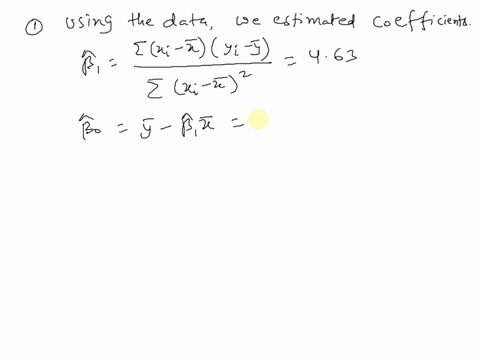 ① Using the data, we estimated coefficients.
β̂₁ = Σ(xᵢ-x̄)(yᵢ-ȳ) / Σ(xᵢ-x̄)² = 4.63
β̂₀ = ȳ - β̂₁x̄ =